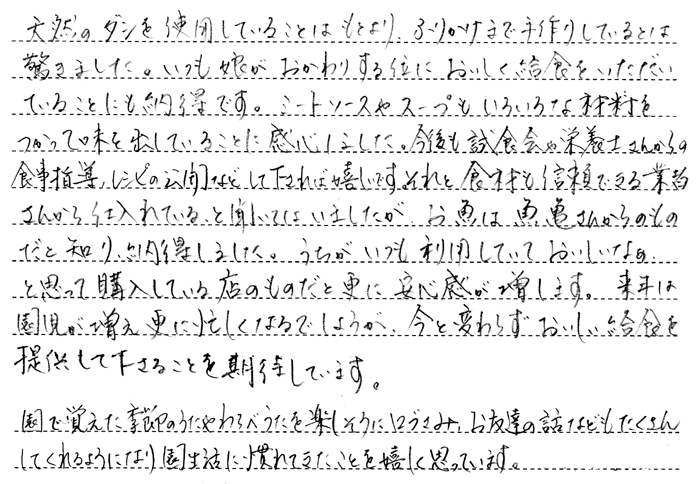 天然のダシを使用していることはもとより、ふりかけまで手作りしているとは
驚きました。いつも娘がおかわりする位においしく給食をいただい
ていることにも納得です。ミートソースやスープもいろいろな材料を
つかって味を出していることに感心しました。今後も試食会や栄養士さんからの
食事指導、レシピの公開などして下されば嬉しいです。それと食材も信頼できる業者
さんから仕入れていると聞いてはいましたが、お魚は魚亀さんからのもの
だと知り、納得しました。うちがいつも利用していておいしいなぁ
と思って購入している店のものだと更に安心感が増します。来年は
園児が増え更に忙しくなるでしょうが、今と変わらずおいしい給食を
提供して下さることを期待しています。
園で覚えた季節のうたやわらべうたを楽しそうに口ずさみ、お友達の話などもたくさん
してくれるようになり園生活に慣れてきたことを嬉しく思っています。